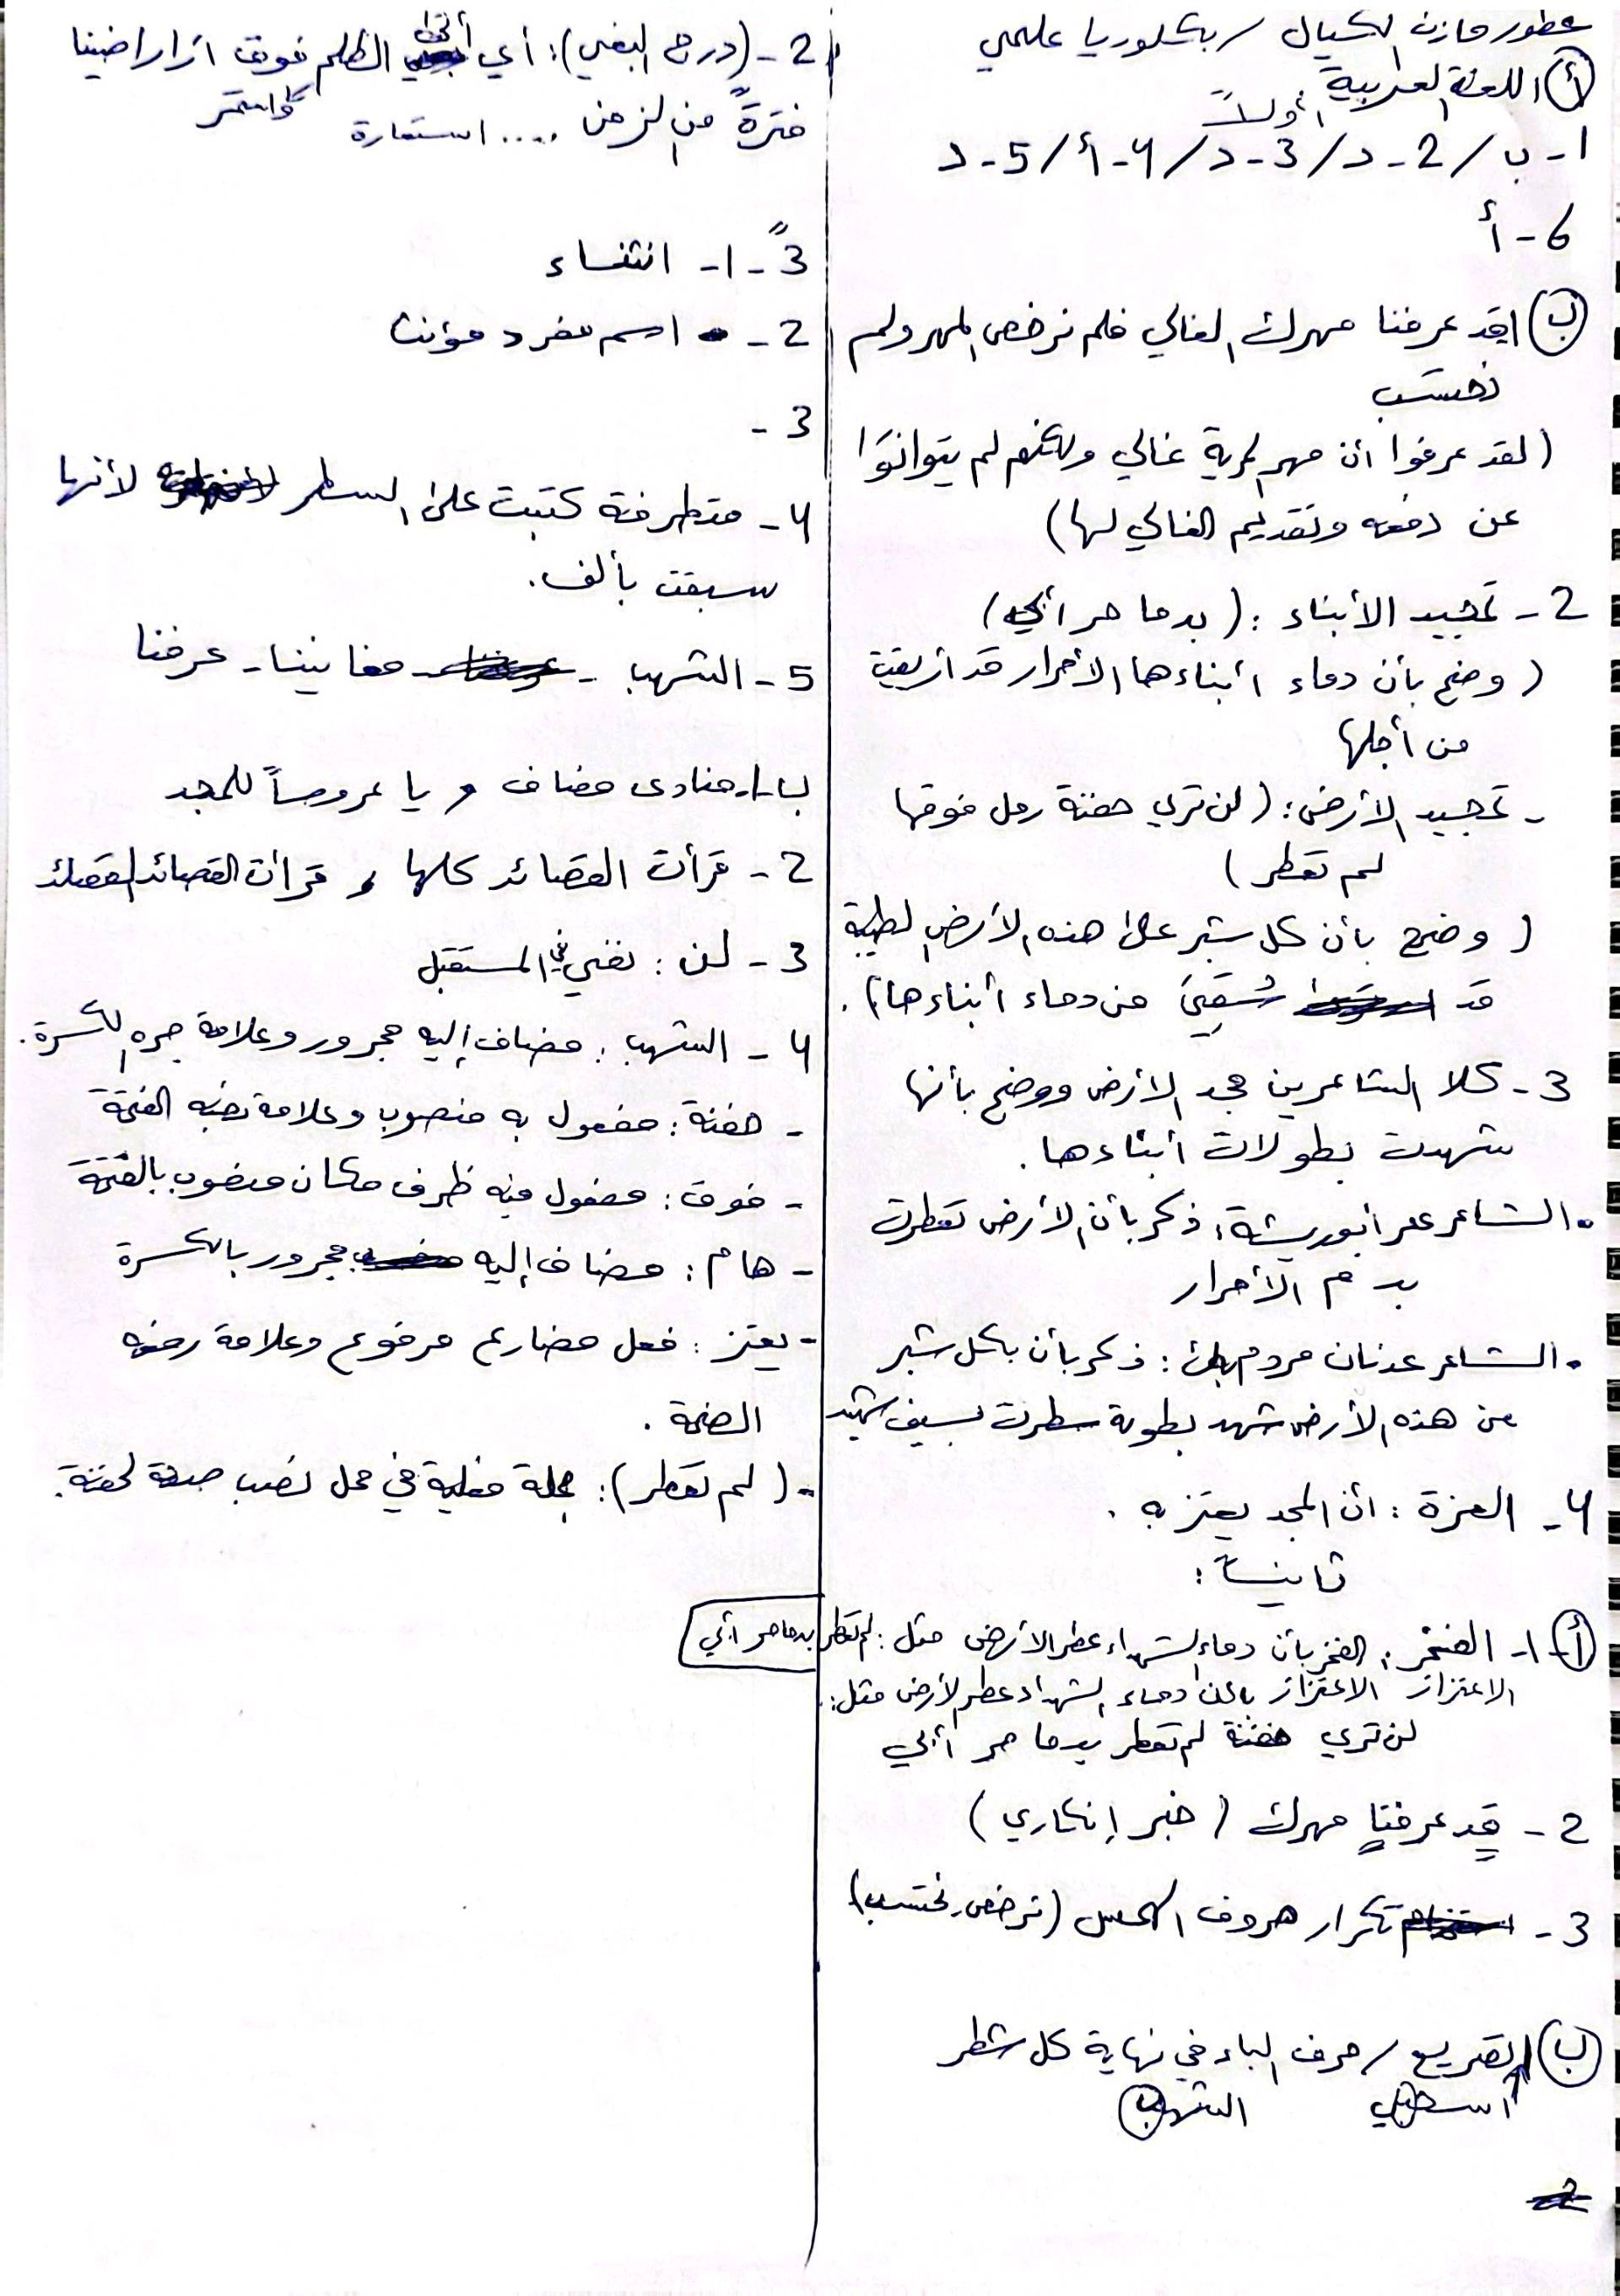 عطور مازن الكيال / بكلوريا علمي
أ) اللغة العربية
أولاً
1- ب / 2- د / 3- د / 4- أ / 5- د
6- أ
ب) 1- قد عرفنا مهرك الغالي فلم نرخص المهر ولم
نحتسب
(لقد عرفوا أن مهر الحرية غالي ولكنهم لم يتوانوا
عن دفعه وتقديم الغالي لها)
2- تمجيد الأبناء : (بدما حر أبي)
(وضح بأن دماء أبناءها الأحرار قد أريقت
من أجلها
- تمجيد الأرض : (لن تري حفنة رمل فوقها
لم تعطر)
(وضح بأن كل شبر على هذه الأرض الطيبة
قد سُقِيَ من دماء أبناءها).
3- كلا الشاعرين مجد الأرض ووضح بأنها
شهدت بطولات أبناءها.
• الشاعر عمر أبو ريشة : ذكر بأن الأرض تعطرت
بدم الأحرار
• الشاعر عدنان مردم بك : ذكر بأن بكل شبر
من هذه الأرض شهد بطولة سطرت بسيف شهيد
4- العزة : أن المجد يعتز به .
ثانياً :
أ) 1- الفخر : الفخر بأن دماء الشهداء عطر الأرض مثل : لم تعطر بدما حر أبي
الاعتزاز الاعتزاز بأن دماء الشهداء عطر الأرض مثل :
لن تري حفنة لم تعطر بدما حر أبي
2- قد عرفنا مهرك (خبر إنكاري)
3- تكرار حروف الهمس (نرخص، نحتسب)
ب) 1- التصريع / حرف الباء في نهاية كل شطر
اسحبي الشهب
2- (درج البغي) : أي أتى الظلم فوق أراضينا
فترةً من الزمن .... استعارة
واستمر
3ً- 1- انتشاء
2- اسم مفرد مؤنث
3-
4- متطرفة كتبت على السطر لأنها
سبقت بألف.
5- الشهب - مغانينا - عرفنا
ب- 1- منادى مضاف و يا عروساً للمجد
2- قرأت القصائد كلها و قرأت القصائد القصائد
3- لن : نفي في المستقبل
4- الشهب : مضاف إليه مجرور وعلامة جره الكسرة.
- حفنة : مفعول به منصوب وعلامة نصبه الفتحة
- فوق : مفعول فيه ظرف مكان منصوب بالفتحة
- هام : مضاف إليه مجرور بالكسرة
- يعتز : فعل مضارع مرفوع وعلامة رفعه
الضمة .
• (لم تعطر) : جملة فعلية في محل نصب صفة لحفنة.